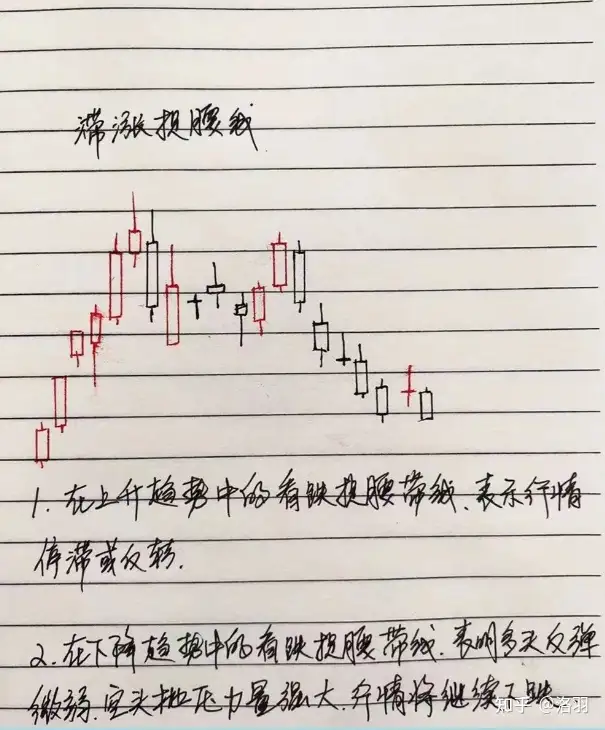 滞涨捉腰线
1. 在上升趋势中的看跌捉腰带线、表示行情
停滞或反转.
2. 在下降趋势中的看跌捉腰带线、表明多头反弹
微弱、空头抛压力量强大、行情将继续下跌.
知乎 @洛羽